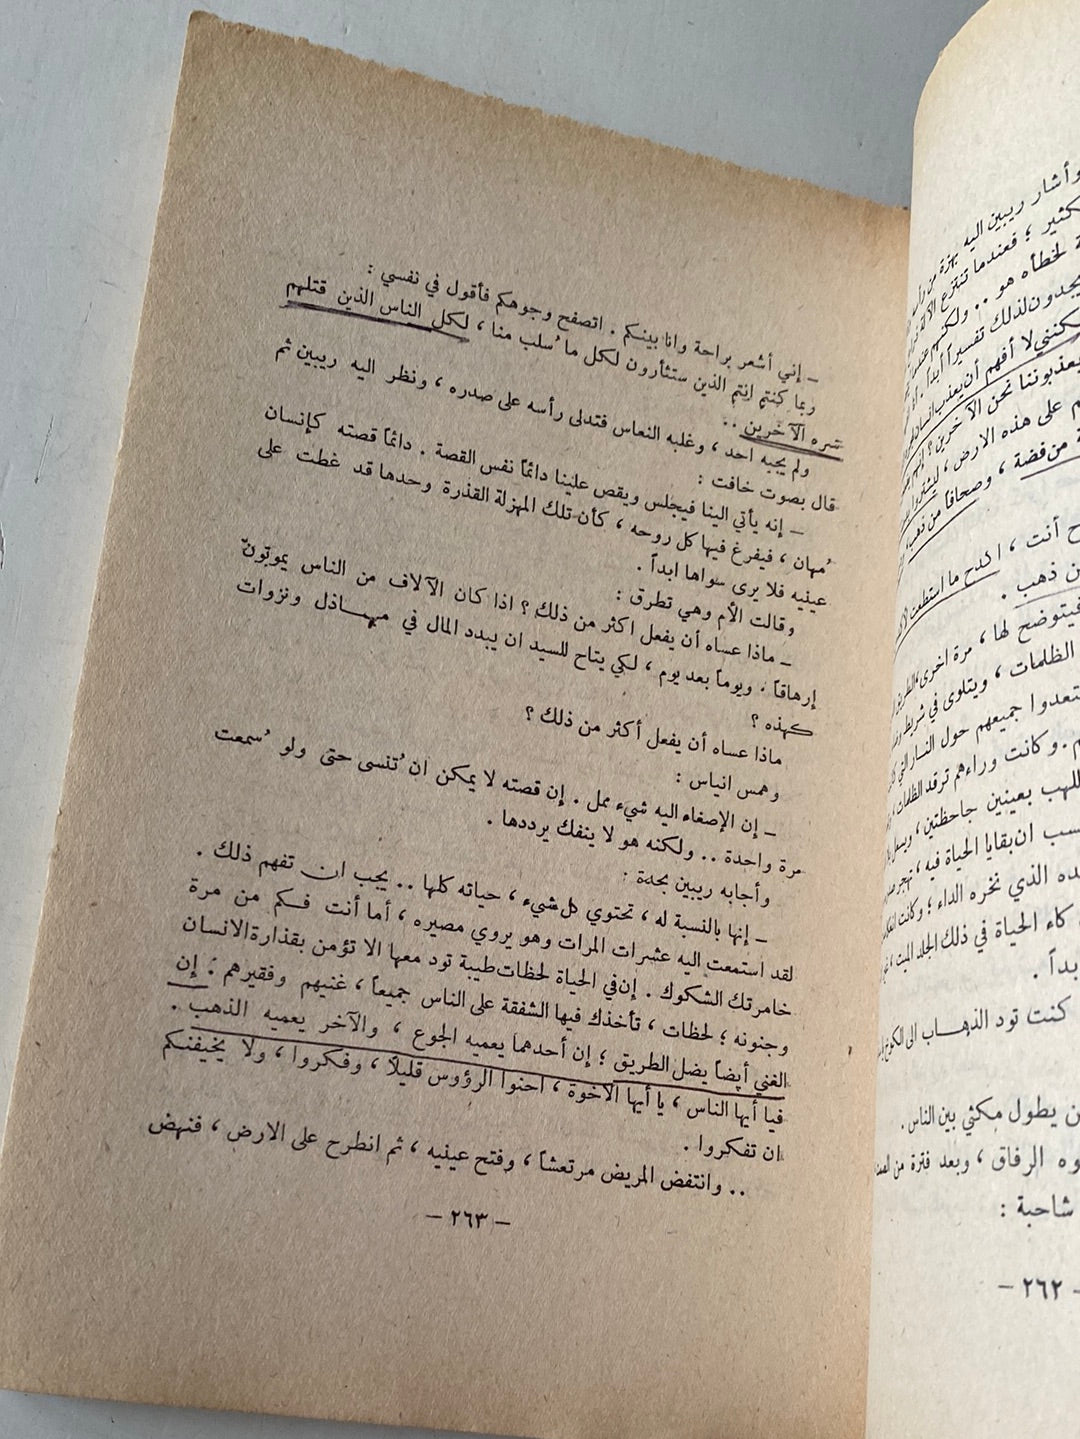 وأشار ريبين اليه بهزة من رأسه
كثير ؛ فعندما تنتزع الآلة
لخطأه هو .. ولكنهم عندما
يجدون لذلك تفسيراً أبداً .
كنني لا أفهم أن يعذب انسان
يعذبوننا نحن الآخرين ؟
على هذه الارض ، ليشتروا
من فضة ، وصحافاً من ذهب
أنت ، اكدح ما استطعت
ن ذهب .
فيتوضح لها ، مرة اخرى ، الطريق
الظلمات ، ويتلوى في شريط
جميعهم حول النار التي
. وكانت وراءهم ترقد الظلمات
اللهب بعينين جاحظتين ، ويسعل
ان بقايا الحياة فيه ، تهجر
الذي نخره الداء ؛ وكانت
كاء الحياة في ذلك الجلد الميت ،
بداً .
كنت تود الذهاب الى الكوخ
ن يطول مكثي بين الناس .
وه الرفاق ، وبعد فترة من الصمت
شاحبة :
– ٢٦٢ –
– إني أشعر براحة وانا بينكم . اتصفح وجوهكم فأقول في نفسي :
ربما كنتم انتم الذين ستثأرون لكل ما سُلب منا ، لكل الناس الذين قتلهم
شره الآخرين ..
ولم يجبه احد ، وغلبه النعاس فتدلى رأسه على صدره ، ونظر اليه ريبين ثم
قال بصوت خافت :
– إنه يأتي الينا فيجلس ويقص علينا دائماً نفس القصة . دائماً قصته كإنسان
مُهان ، فيفرغ فيها كل روحه ، كأن تلك المهزلة القذرة وحدها قد غطت على
عينيه فلا يرى سواها ابداً .
وقالت الأم وهي تطرق :
– ماذا عساه أن يفعل اكثر من ذلك ؟ اذا كان الآلاف من الناس يموتون
إرهاقاً ، ويوماً بعد يوم ، لكي يتاح للسيد ان يبدد المال في مباذل ونزوات
كهذه ؟
ماذا عساه أن يفعل أكثر من ذلك ؟
وهمس انياس :
– إن الإصغاء اليه شيء ممل . إن قصته لا يمكن ان تُنسى حتى ولو سُمعت
مرة واحدة .. ولكنه هو لا ينفك يرددها .
وأجابه ريبين بحدة :
– إنها بالنسبة له ، تحتوي كل شيء ، حياته كلها .. يجب ان تفهم ذلك .
لقد استمعت اليه عشرات المرات وهو يروي مصيره ، أما أنت فكم من مرة
خامرتك الشكوك . إن في الحياة لحظات طيبة تود معها الا تؤمن بقذارة الانسان
وجنونه ؛ لحظات ، تأخذك فيها الشفقة على الناس جميعاً ، غنيهم وفقيرهم : إن
الغني أيضاً يضل الطريق ؛ إن أحدهما يعميه الجوع ، والآخر يعميه الذهب .
فيا أيها الناس ، يا أيها الأخوة ، احنوا الرؤوس قليلاً ، وفكروا ، ولا يخيفنكم
ان تفكروا .
.. وانتفض المريض مرتعشاً ، وفتح عينيه ، ثم انطرح على الارض ، فنهض
– ٢٦٣ –